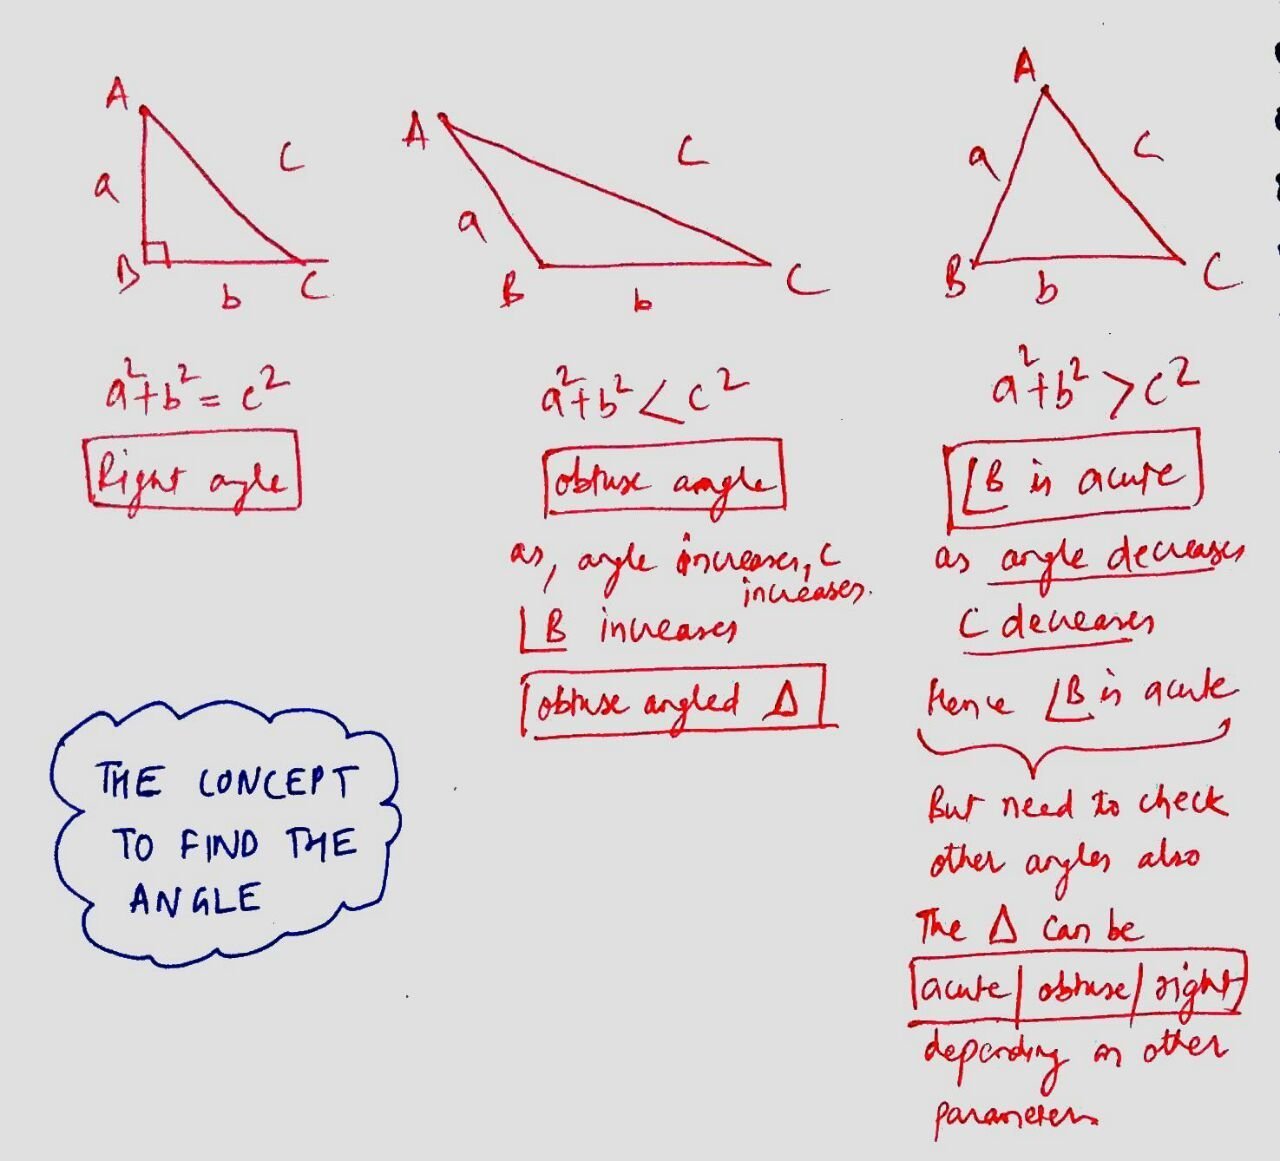 A
a
C
B
b
C
a²+b² = c²
Right angle
A
C
a
B
b
C
a²+b² < c²
obtuse angle
as, angle increases, C
increases.
∠B increases
obtuse angled Δ
A
a
C
B
b
C
a²+b² > c²
∠B is acute
as angle decreases
C decreases
Hence ∠B is acute
But need to check
other angles also
The Δ can be
acute | obtuse | right
depending on other
parameters
THE CONCEPT
TO FIND THE
ANGLE